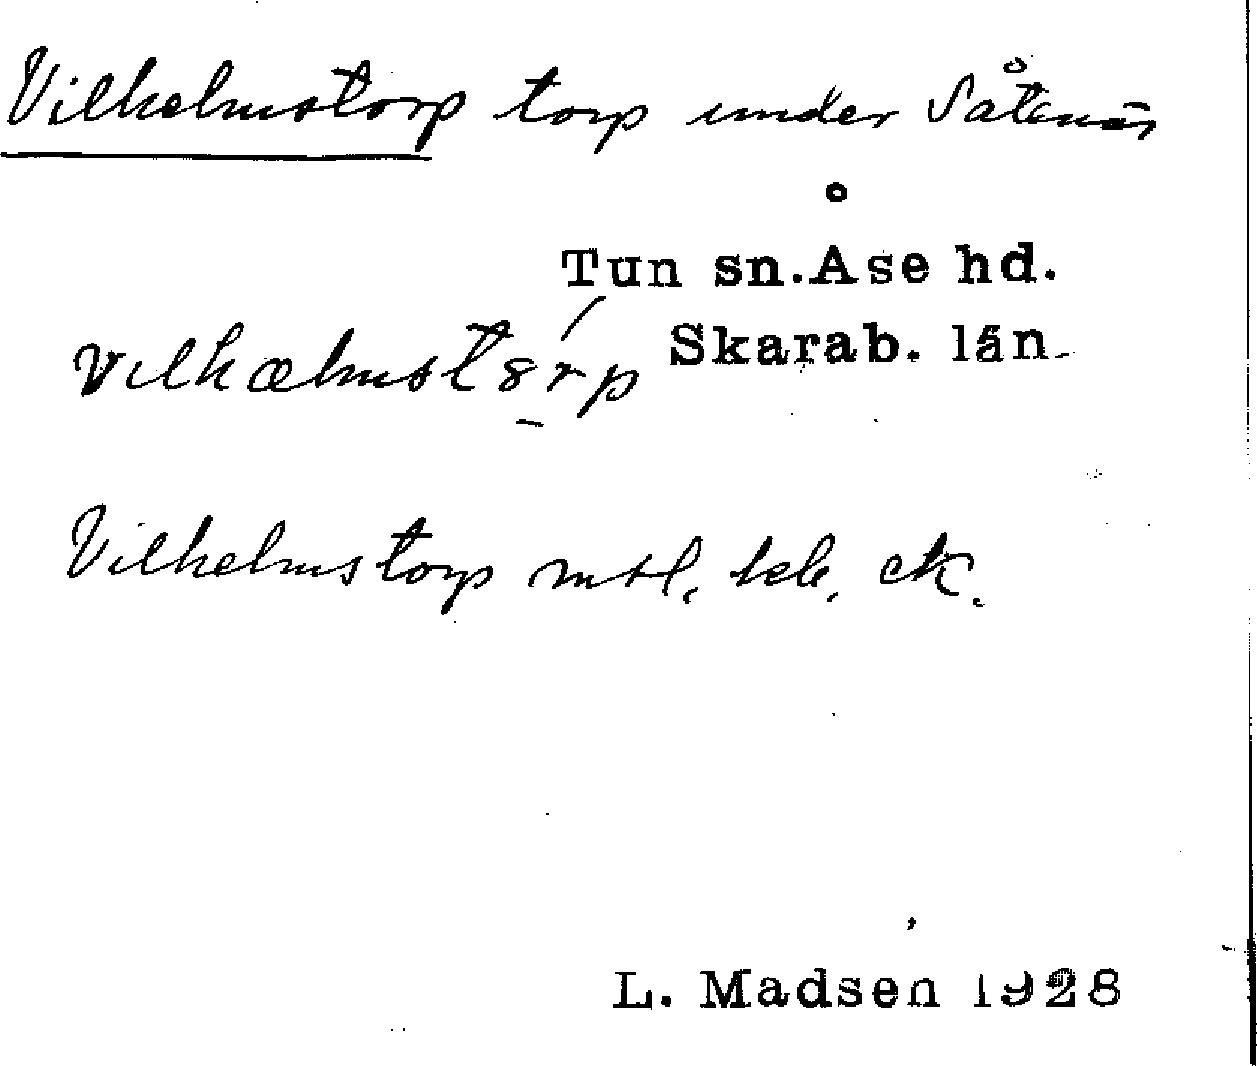 Vilhelmstorp torp under Såtenäs
Tun sn. Åse hd.
Skarab. län
vilhælmstórp
Vilhelmstorp mtl, ek.
L. Madsen 1928